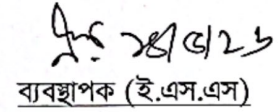 ২৪/৫/২৬
ব্যবস্থাপক (ই.এস.এস)